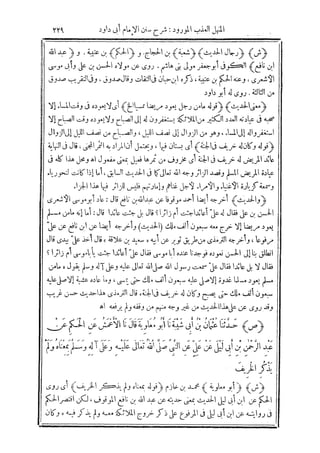 المنهل العذب المورود: شرح سنن الإمام أبى داود ٢٢٩
﴿ش﴾ ﴿رجال الحديث﴾ ﴿شعبة﴾ بن الحجاج. و ﴿الحكم﴾ بن عتيبة. و ﴿عبد الله
ابن نافع﴾ الكوفى أبو جعفر مولى بنى هاشم. روى عن مولاه الحسن بن على وأبى موسى
الأشعرى، وعنه الحكم بن عتيبة، ذكره ابن حبان فى الثقات وقال صدوق، وفى التقريب صدوق
من الثالثة. روى له أبو داود
﴿معنى الحديث﴾ ﴿قوله ما من رجل يعود مريضا ممسيا الخ﴾ أى لا يعوده فى وقت المساء إلا
صحبه فى عيادته العدد الكثير من الملائكة يستغفرون له إلى الصباح ولا يعوده وقت الصباح إلا
استغفروا له إلى المساء، وهو من الزوال إلى نصف الليل، والصباح من نصف الليل إلى الزوال
﴿قوله وكان له خريف فى الجنة﴾ أى بستان فيها، ويحتمل أن المراد به الثمر المجنى، قال فى النهاية
عائد المريض له خريف فى الجنة أى مخروف من ثمرها فعيل بمعنى مفعول اهـ ومحل هذا كله فى
عيادة المريض المسلم وقصد الزائر وجه الله تعالى كما فى الحديث السابق، أما إذا كانت لنحو رياء
وسمعة كزيارة الأغنياء والأمراء لأجل غناهم وإمارتهم فليس للزائر فيها هذا الجزاء.
﴿والحديث﴾ أخرجه أيضا أحمد موقوفا عن عبد الله بن نافع قال: عاد أبو موسى الأشعرى
الحسن بن على فقال له على أعائدا جئت أم زائرا؟ قال بل جئت عائدا قال: أما إنه ما من مسلم
يعود مريضا إلا خرج معه سبعون ألف ملك ﴿الحديث﴾ وأخرجه أيضا عن ابن نافع عن على
مرفوعا، وأخرجه الترمذى من طريق ثوير عن أبيه، سعيد بن علاقة، قال أخذ على بيدى قال
انطلق بنا إلى الحسن نعوده فوجدنا عنده أبا موسى فقال على أعائدا جئت يا أبا موسى أم زائرا؟
فقال لا بل عائدا فقال على سمعت رسول الله صلى الله تعالى عليه وعلى آله وسلم يقول، ما من
مسلم يعود مسلما غدوة إلا صلى عليه سبعون ألف ملك حتى يمسى، وما عاده عشية إلا صلى عليه
سبعون ألف ملك حتى يصبح وكان له خريف فى الجنة، قال الترمذى هذا حديث حسن غريب
وقد روى عن على هذا الحديث من غير وجه منهم من وقفه ولم يرفعه اهـ
﴿ص﴾ حَدَّثَنَا عُثْمَانُ بْنُ أَبِى شَيْبَةَ نَا أَبُو مُعَاوِيَةَ قَالَ نَا الْأَعْمَشُ عَنِ الْحَكَمِ عَنْ
عَبْدِ الرَّحْمَنِ بْنِ أَبِى لَيْلَى عَنْ عَلِىٍّ عَنِ النَّبِىِّ صَلَّى اللهُ تَعَالَى عَلَيْهِ وَعَلَى آلِهِ وَسَلَّمَ بِمَعْنَاهُ وَلَمْ
يَذْكُرِ الْخَرِيفَ
﴿ش﴾ ﴿أبو معاوية﴾ محمد بن خازم ﴿قوله بمعناه ولم يذكر الخريف﴾ أى روى
الحكم عن ابن أبى ليلى الحديث بمعنى حديثه عن عبد الله بن نافع الموقوف، لكن اقتصر الحكم
فى روايته عن ابن أبى ليلى فى المرفوع على ذكر خروج الملائكة معه ولم يذكر فيه، وكان